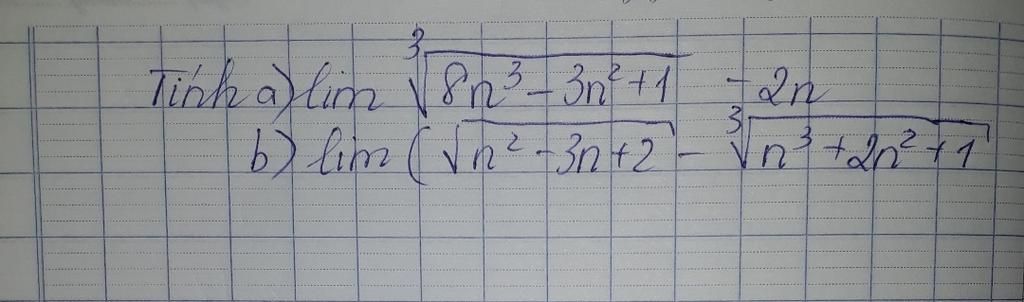 Tính a) lim ∛(8n³ - 3n² + 1) - 2n
b) lim (√(n² - 3n + 2) - ∛(n³ + 2n² + 1)